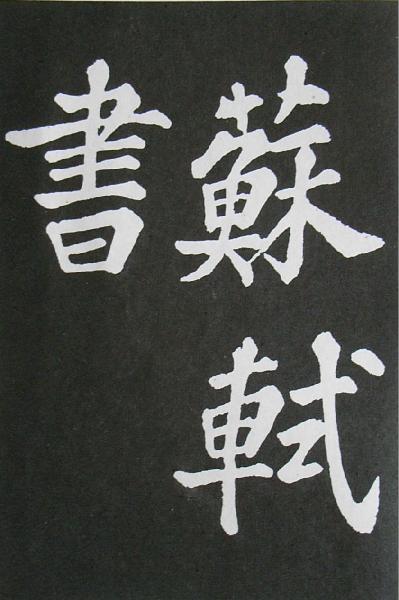 蘇軾
書